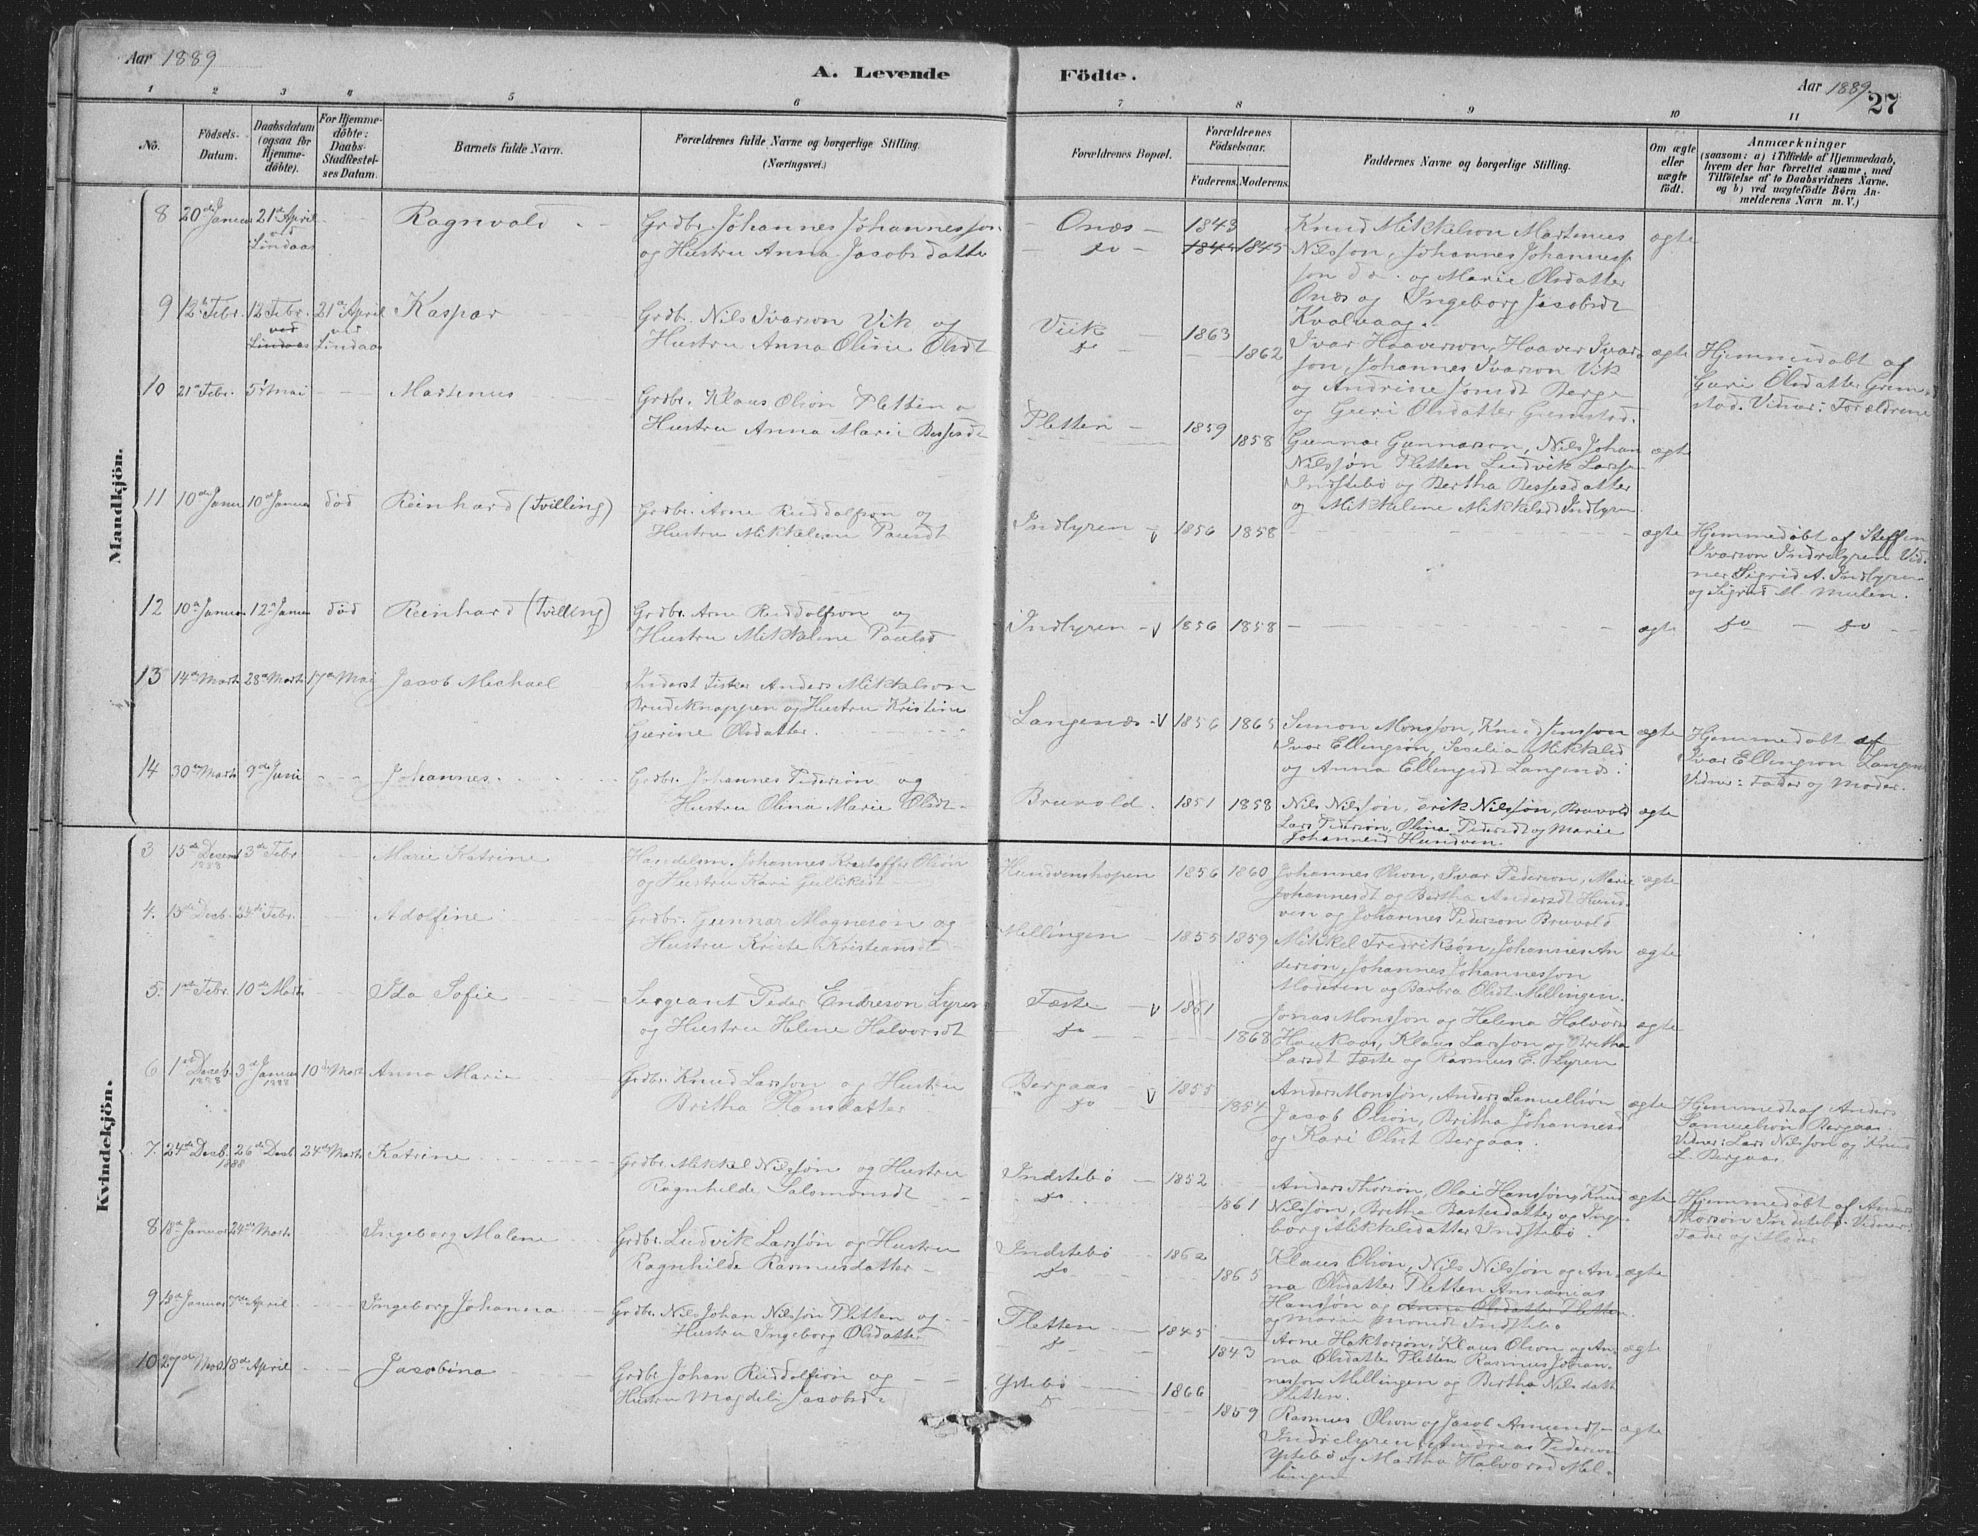 Aar 1889
A. Levende Födte.
Aar 1889.
27
1 2 3 4 5 6 7 8 9 10 11
No.
Födsels-Datum.
Daabsdatum (ogsaa for Hjemme-döbte).
For Hjemme-döbte: Daabs-Stadfæstel-ses Datum.
Barnets fulde Navn.
Forældrenes fulde Navne og borgerlige Stilling. (Næringsvei.)
Forældrenes Bopæl.
Forældrenes Födselsaar.
Faderens. Moderens.
Faddernes Navne og borgerlige Stilling.
Om ægte eller uægte födt.
Anmærkninger
(saasom: a) i Tilfælde af Hjemmedaab, hvem der har forrettet samme, med Tilföielse af to Daabsvidners Navne. og b) ved uægtefödte Börn An-melderens Navn m. V.)
Mandkjön.
8 20de Januar 21de April ved Lindaas Ragnvald
Grdbr. Johannes Johannesson
og Hustru Anna Jacobsdatter
Onæs 1843
do 1845 1845
Knud Mikkelson Martinus
Nilsson, Johannes Johannes-
son do. og Marie Olsdatter
Onæs og Ingeborg Jacobsdt
Kvalvaag.
ægte
9 12te Febr. 12 Febr. ved Lindaas 21de April ved Lindaas Kaspar
Grdbr. Nils Ivarson Vik og
Hustru Anna Oline Olsdt
Viik 1863
do 1862
Ivar Haaverson, Haaver Ivar-
son, Johannes Ivarson Vik
og Andrine Jonsdt Berge
og Guri Olsdatter Grimstad.
ægte
Hjemmedøbt af
Guri Olsdatter Grim-
stad. Vidner: Forældrene
10 21de Febr. 5te Mai Martinus
Grdbr. Klaus Olson Fletten o
Hustru Anna Marie Bessesdt
Fletten 1859 1858
Gunnar Gunnarson, Nils Johan
Nilssøn Fletten Ludvik Larss.
Indstebø og Bertha Bessesdatter
og Mikkeline Mikkelsd Indlyren
ægte
11 10de Januar 10de Januar død Reinhard (Tvilling)
Grdbr. Arne Ruddolfson og
Hustru Mikkeline Paulsdt
Indlyren v 1856 1858
ægte
Hjemmedøbt af Steffen
Ivarson Indrelyren Vid-
ner Sigrid A. Indlyren
og Sigrid M. Mulen.
12 10de Januar 12te Januar død Reinhard (Tvilling)
Grdbr. Arne Ruddolfson og
Hustru Mikkeline Paulsd
Indlyren v 1856 1858
ægte
do do
13 14de Marts 28de Marts 17de Mai Jacob Michael
Inderst Fisker Anders Mikkelson
Brudeknappen og Hustru Kristine
Gurine Olsdatter.
Langenæs v 1856 1865
Simon Monsson, Knud Simsson
Ivar Ellingsøn, Secelia Mikkelsd
og Anna Ellingsdt Langenæs.
ægte
Hjemmedøbt af
Ivar Ellingson Langen
Vidner: Fader og Moder.
14 30te Marts 9de Juni Johannes.
Grdbr. Johannes Pederson og
Hustru Olina Marie Olsdt
Bruvold. 1851 1858
Nils Nilssøn, Erik Nilssøn, Bruvold
Lars Pederson, Olina Pedersdt og Marie
Johannesd Hundven.
ægte
Kvindekjön.
3 15de Decemb 1888 3de Febr Marie Katrine
Handelsm. Johannes Kristoffer Olson
og Hustru Kari Gulliksdt
Hundvenshopen 1856 1860
Johannes Olson, Ivar Pederson, Marie
Johannesdt og Bertha Andersdt Hund-
ven og Johannes Pederson Bruvold
ægte
4. 15de Decb. 24de Febr. Adolfine
Grdbr. Gunnar Magneson og
Hustru Kriste Kristiansdt
Mellingen 1855 1859
Mikkel Fredriksøn, Johannes An-
derson, Johannes Johannesson
Moderen og Barbra Olsdt Mellingen.
ægte
5. 1ste Febr. 10de Marts Ida Sofie
Sergeant Peder Endreson Lyren
og Hustru Heline Halvorsdt
Fæste v 1861
do 1868
Jonas Monsson og Helena Halvors
Haukaas, Klaus Larsson og Britha
Larsdt Fæste og Rasmus E. Lyren
ægte
6 1ste Decb. 1888 3de Januar 1888 10de Marts Anna Marie
Grdbr. Knud Larsson og Hustru
Britha Hansdatter
Bergaas v 1855
do 1854
Anders Monsson, Anders Samuelson
Jacob Olson, Britha Johannesd
og Kari Olsdt Bergaas.
ægte
Hjemmedr af Anders
Samuelson Bergaas
Vidner: Lars Nilsson og Knud
L. Bergaas
7. 24de Decb. 1888 26de Decb. 24de Marts Katrine
Grdbr. Mikkel Nilssøn og Hustru
Ragnhilde Salomonsdt
Indstebø 1852
do 1861
Anders Thorson, Olai Hanssøn, Knud
Nilssøn, Britha Bastesdatter og Inge-
borg Mikkelsdatter Indstebø.
ægte
Hjemmedøbt af Anders
Thorson Indstebø. Vidner:
Fader og Moder
8 18de Januar 24de Marts Ingeborg Malene
Grdbr. Ludvik Larssøn og Hustru
Ragnhilde Rasmusdatter
Indstebø 1862
do 1865
Klaus Olson, Nils Nilssøn og An-
na Olsdatter Fletten Annanias
Hanssøn og Anna Olsdatter Fletten
og Marie Monsdt Indstebø
ægte
9 13de Januar 7de April Ingeborg Johanna
Grdbr. Nils Johan Nilssøn Fletten og
Hustru Ingeborg Olsdatter
Fletten 1845
do 1843
Arne Haktorson, Klaus Olson og An-
na Olsdatter Fletten Rasmus Johan-
nesson Mellingen og Bertha Nilsdatt
Fletten.
ægte
10 27de 18de April Jacobina
Grdbr Johan Ruddolfson og
Hustru Magdeli Jacobsd.
Ystebø 1866
do 1859
Rasmus Olson og Jacob Amunds-
Indrelyren, Andreas Pederson
Ystebø og Martha Halvorsd Mel-
lingen
ægte